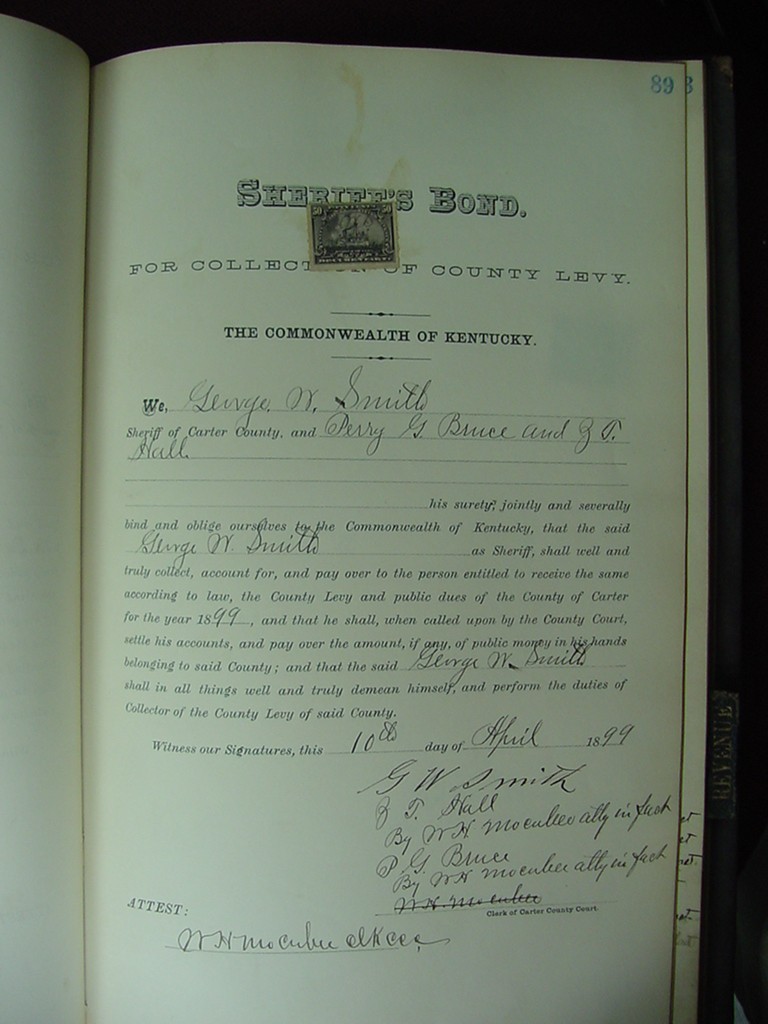 89 3
SHERIFF'S BOND.
50 50
FOR COLLECTION OF COUNTY LEVY.
THE COMMONWEALTH OF KENTUCKY.
We, George W. Smith
Sheriff of Carter County, and Perry G. Bruce and Z T.
Hall
his surety, jointly and severally
bind and oblige ourselves to the Commonwealth of Kentucky, that the said
George W. Smith as Sheriff, shall well and
truly collect, account for, and pay over to the person entitled to receive the same
according to law, the County Levy and public dues of the County of Carter
for the year 1899, and that he shall, when called upon by the County Court,
settle his accounts, and pay over the amount, if any, of public money in his hands
belonging to said County; and that the said George W. Smith
shall in all things well and truly demean himself, and perform the duties of
Collector of the County Levy of said County.
Witness our Signatures, this 10th day of April 1899
G W Smith
Z T. Hall
By WH Mocabee atty in fact
P. G Bruce
By WH Mocabee atty in fact
W.H. Mocabee
Clerk of Carter County Court.
ATTEST:
WH Mocabee clk ccc
REVENUE